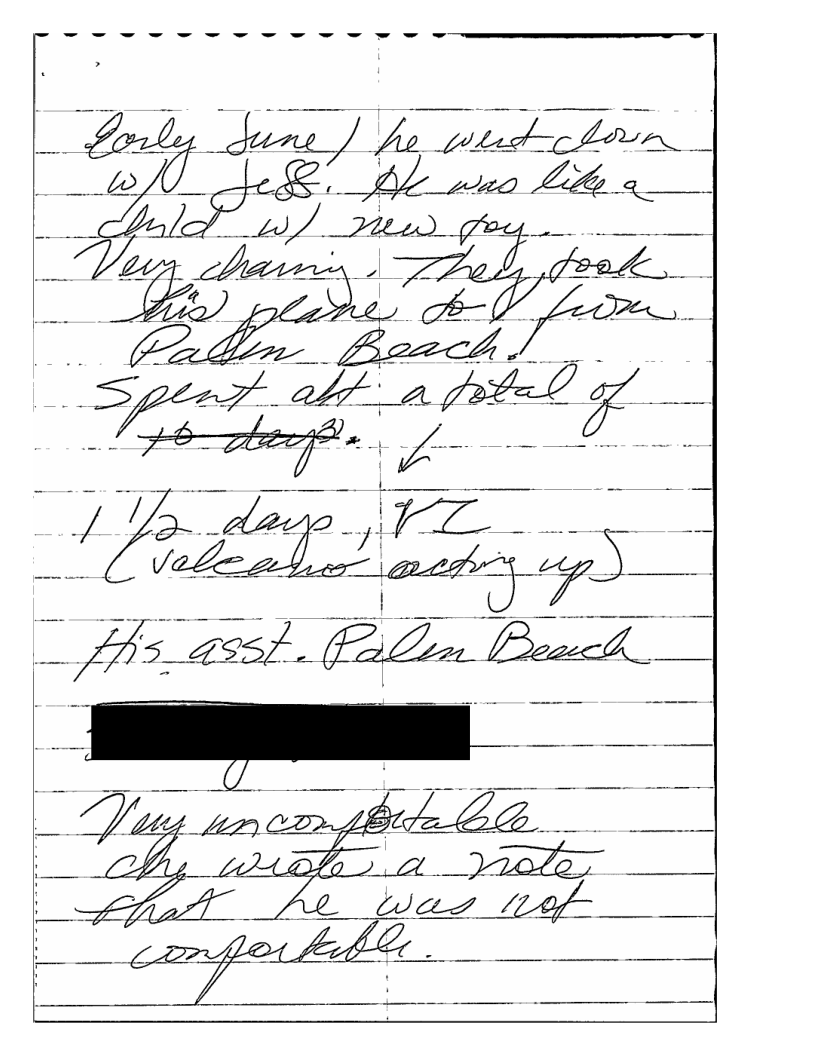 Early June / he went down
w/ Jeff. He was like a
child w/ new toy.
Very charming. They took
his plane to / from
Palm Beach.
Spent abt a total of
10 days. ↓
1 1/2 days, VI
(volcano acting up)
His asst. Palm Beach
Very uncomfortable
she wrote a note
that he was not
comfortable.